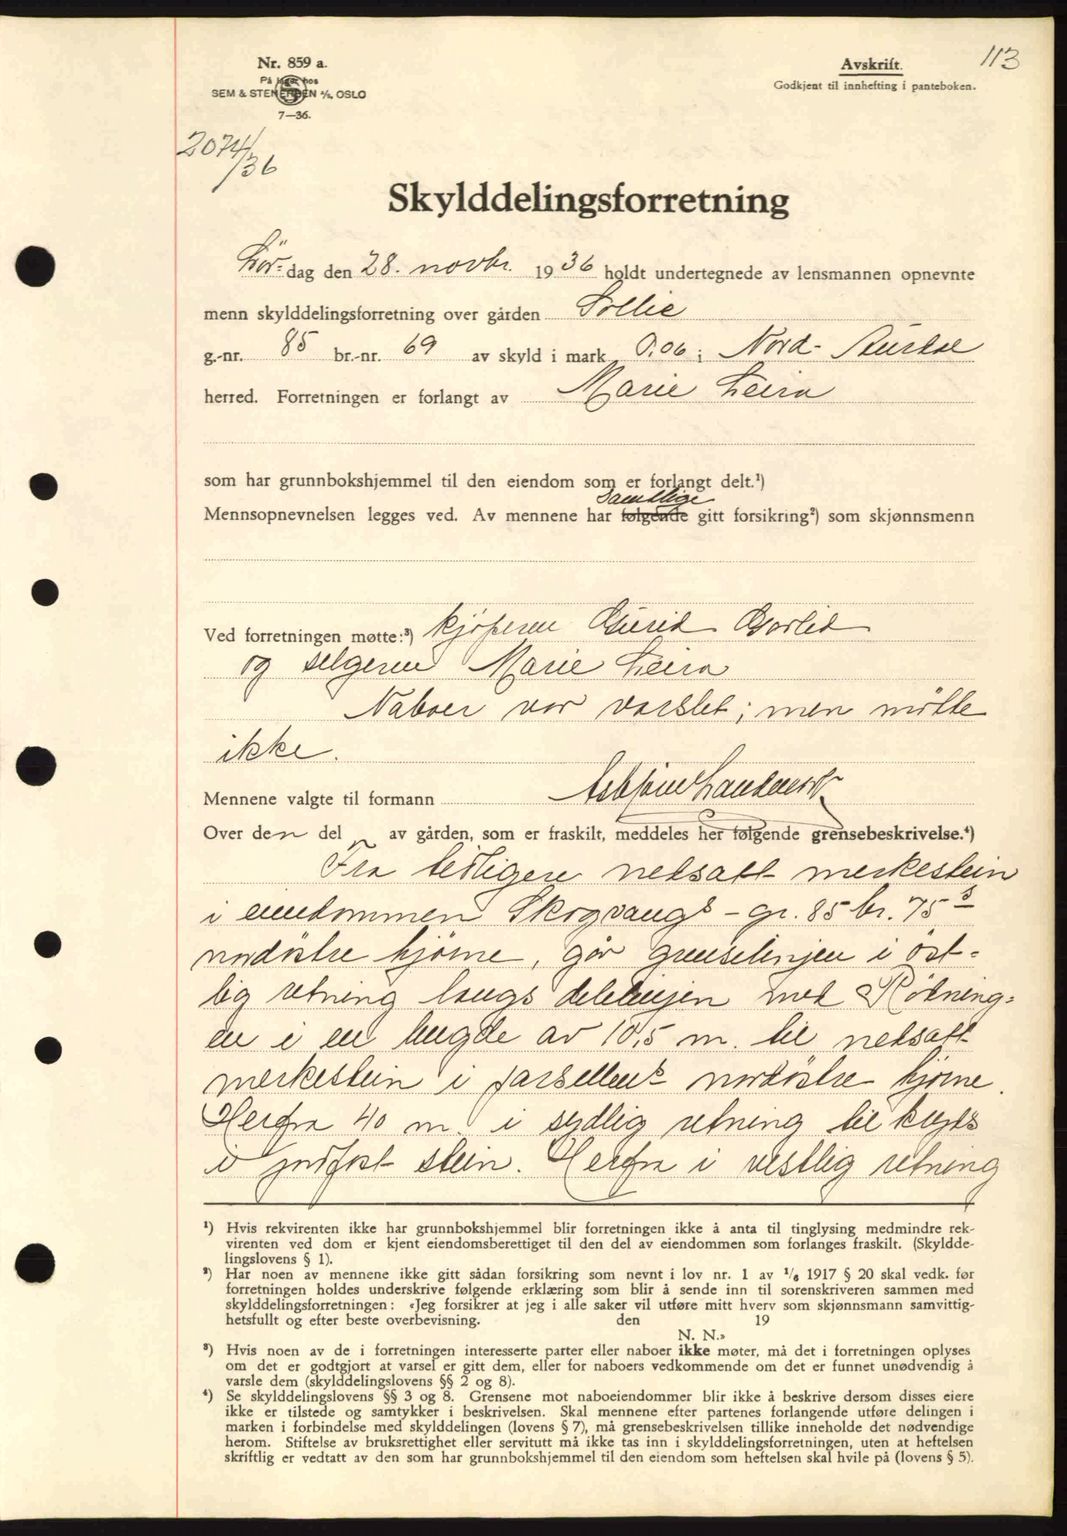 113
Nr. 859 a.
På lager hos
SEM & STENERSEN A/S, OSLO
7—36.
Avskrift.
Godkjent til innhefting i panteboken.
2074/36
Skylddelingsforretning
Lör-dag den 28. novbr. 1936 holdt undertegnede av lensmannen opnevnte
menn skylddelingsforretning over gården Sollie
g.-nr. 85 br.-nr. 69 av skyld i mark 0,06 i Nord-Aurdal
herred. Forretningen er forlangt av Marie Leira
som har grunnbokshjemmel til den eiendom som er forlangt delt.¹)
samtlige
Mennsopnevnelsen legges ved. Av mennene har følgende gitt forsikring²) som skjønnsmenn
Ved forretningen møtte:³) kjöperen Gurid
og selgeren Marie Leira
Naboer var varslet; men mötte
ikke.
Mennene valgte til formann
Over den del av gården, som er fraskilt, meddeles her følgende grensebeskrivelse.⁴)
Fra tidligere nedsatt merkestein
i eiendommen Skogvangs - gr. 85 br. 75 s
nordöstre hjörne, går grenselinjen i öst-
lig retning langs delelinjen med Rödning-
en i en lengde av 10,5 m. til nedsatt
merkestein i parsellens nordöstre hjörne.
Herfra 40 m. i sydlig retning til kryds
i jordfast stein. Herfra i vestlig retning
¹) Hvis rekvirenten ikke har grunnbokshjemmel blir forretningen ikke å anta til tinglysing medmindre rek-
virenten ved dom er kjent eiendomsberettiget til den del av eiendommen som forlanges fraskilt. (Skyldde-
lingslovens § 1).
²) Har noen av mennene ikke gitt sådan forsikring som nevnt i lov nr. 1 av 1/6 1917 § 20 skal vedk. før
forretningen holdes underskrive følgende erklæring som blir å sende inn til sorenskriveren sammen med
skylddelingsforretningen: «Jeg forsikrer at jeg i alle saker vil utføre mitt hverv som skjønnsmann samvittig-
hetsfullt og efter beste overbevisning. den 19
N. N.»
³) Hvis noen av de i forretningen interesserte parter eller naboer ikke møter, må det i forretningen oplyses
om det er godtgjort at varsel er gitt dem, eller for naboers vedkommende om det er funnet unødvendig å
varsle dem (skylddelingslovens §§ 2 og 8).
⁴) Se skylddelingslovens §§ 3 og 8. Grensene mot naboeiendommer blir ikke å beskrive dersom disses eiere
ikke er tilstede og samtykker i beskrivelsen. Skal mennene efter partenes forlangende utføre delingen i
marken i forbindelse med skylddelingen (lovens § 7), må grensebeskrivelsen tillike inneholde det nødvendige
herom. Stiftelse av bruksrettighet eller servitutt må ikke tas inn i skylddelingsforretningen, uten at heftelsen
skriftlig er vedtatt av den som har grunnbokshjemmel til den eiendom som heftelsen skal hvile på (lovens § 5).